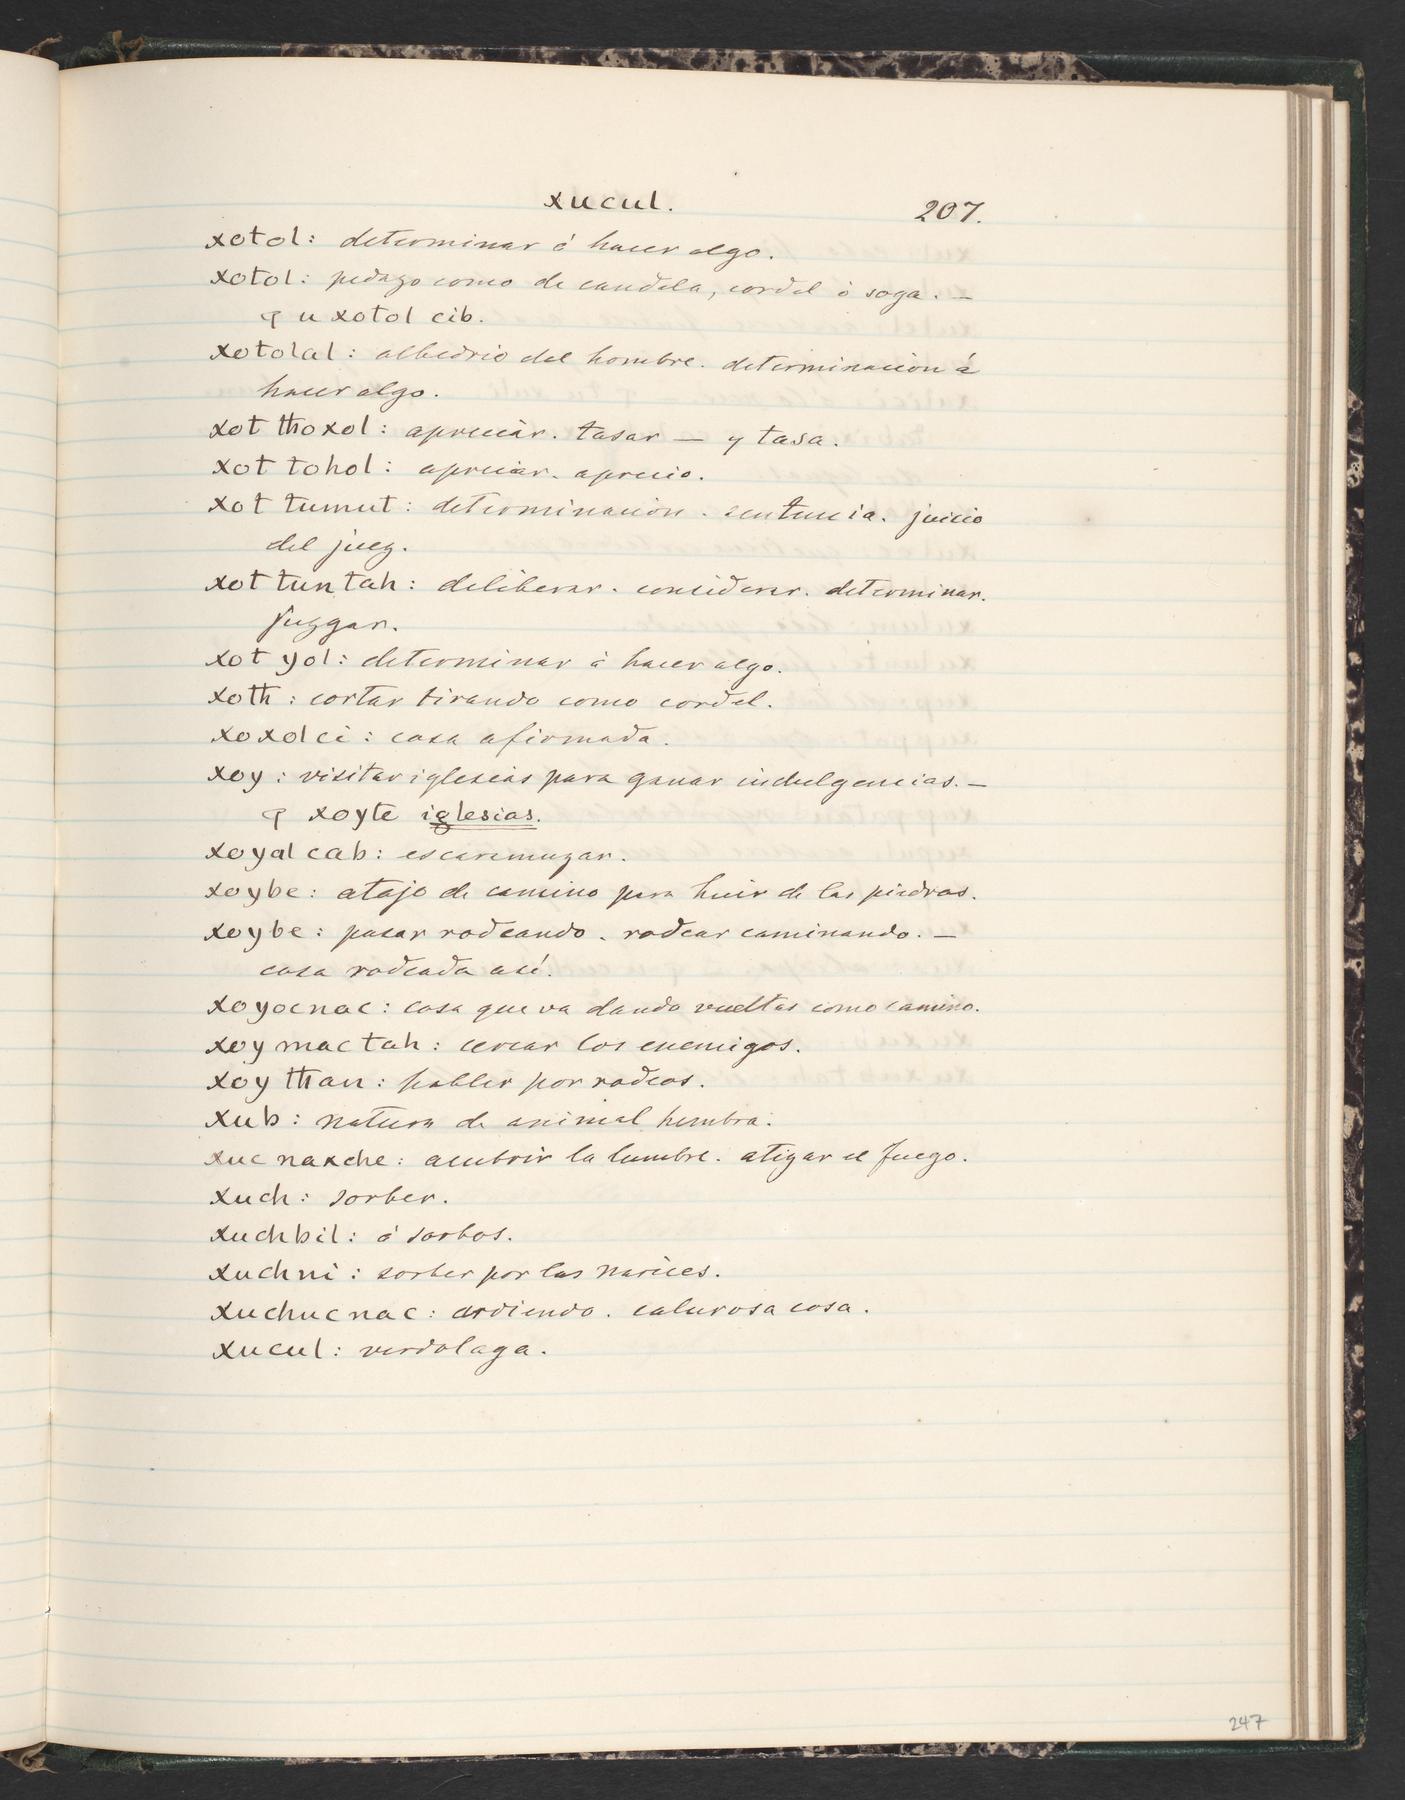 xucul. 207.
xotol: determinar á hacer algo.
xotol: pedazo como de candela, cordel ó soga. —
ꟼ u xotol cib.
xotolal: albedrio del hombre. determinacion á
hacer algo.
xot thoxol: apreciar. tasar — y tasa.
xot tohol: apreciar. aprecio.
xot tumut: determinacion. sentencia. juicio
del juez.
xot tun tah: deliberar. considerar. determinar.
juzgar.
xot yol: determinar á hacer algo.
xoth: cortar tirando como cordel.
xoxol ci: casa afirmada.
xoy: visitar iglesias para ganar indulgencias. —
ꟼ xoyte iglesias.
xoyal cab: escaramuzar.
xoybe: atajo de camino para huir de las piedras.
xoybe: pasar rodeando. rodear caminando. —
cosa rodeada así.
xoyocnac: cosa que va dando vueltas como camino.
xoy mac tah: cercar los enemigos.
xoy than: hablar por rodeos.
xub: natura de animal hembra.
xuc naxche: acubrir la lumbre. atizar el fuego.
xuch: sorber.
xuchbil: á sorbos.
xuchni: sorber por las narices.
xuchucnac: ardiendo. calurosa cosa.
xucul: verdolaga.
247